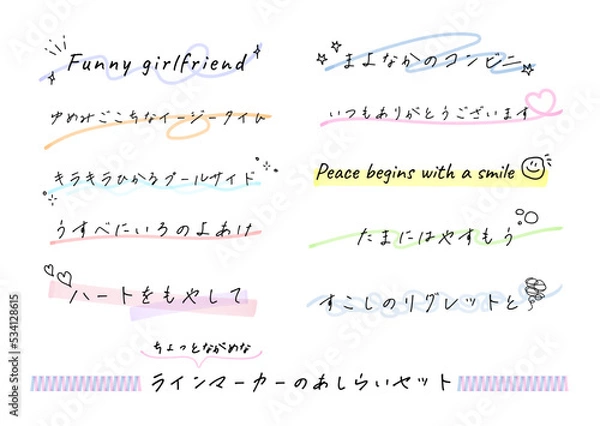 Funny girlfriend
ゆめみごこちなイージータイム
キラキラひかるプールサイド
うすべにいろのよあけ
ハートをもやして
まよなかのコンビニ
いつもありがとうございます
Peace begins with a smile
たまにはやすもう
すこしのリグレットと
ちょっとながめな
ラインマーカーのあしらいセット
Adobe Stock | #534128615